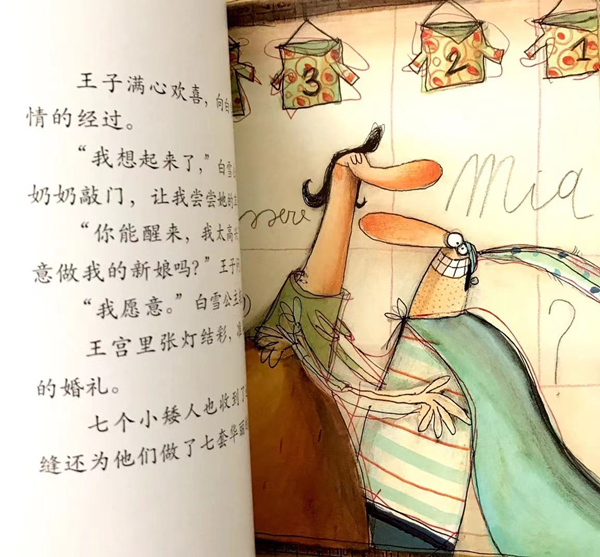 王子满心欢喜，向白
情的经过。
“我想起来了，”白雪公
奶奶敲门，让我尝尝她的
“你能醒来，我太高兴
意做我的新娘吗？”王子
“我愿意。”白雪公主
王宫里张灯结彩，准
的婚礼。
七个小矮人也收到了
缝还为他们做了七套华丽
3
2
1
Mia
?